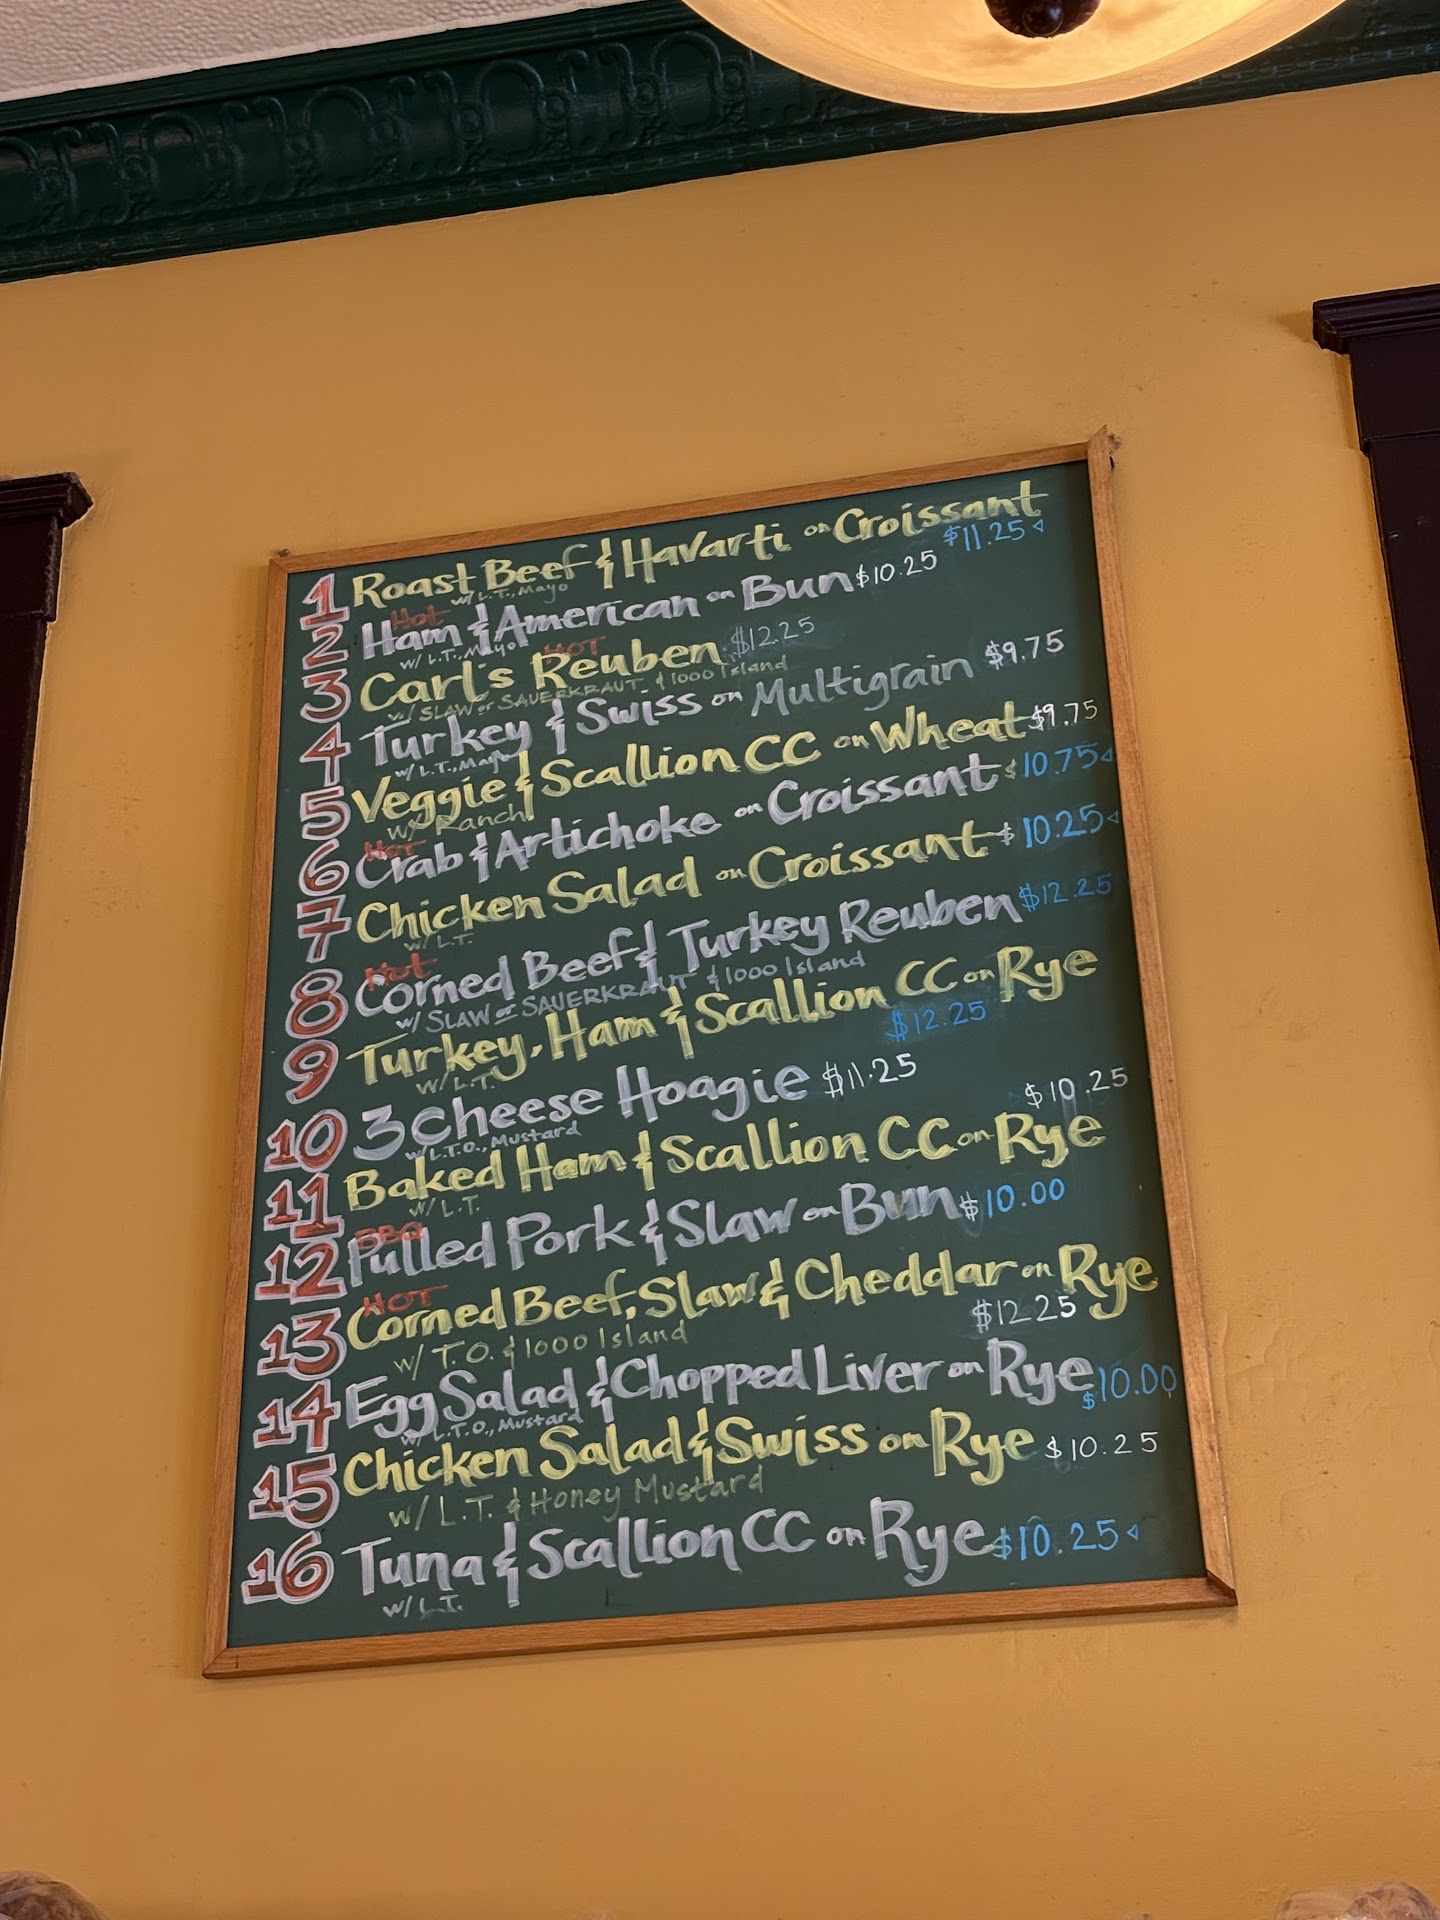 1 Roast Beef & Havarti on Croissant
$11.25
w/ L.T., Mayo
Hot
2 Ham & American on Bun $10.25
w/ L.T., Mayo
HOT
3 Carl's Reuben $12.25
w/ SLAW or SAUERKRAUT & 1000 Island
4 Turkey & Swiss on Multigrain $9.75
w/ L.T., Mayo
5 Veggie & Scallion CC on Wheat $9.75
w/ Ranch
HOT
6 Crab & Artichoke on Croissant $10.75
7 Chicken Salad on Croissant $10.25
w/ L.T.
Hot
8 Corned Beef & Turkey Reuben $12.25
w/ SLAW or SAUERKRAUT & 1000 Island
9 Turkey, Ham & Scallion CC on Rye
$12.25
w/ L.T.
10 3 Cheese Hoagie $11.25
w/ L.T.O., Mustard
$10.25
11 Baked Ham & Scallion CC on Rye
w/ L.T.
BBQ
12 Pulled Pork & Slaw on Bun $10.00
HOT
13 Corned Beef, Slaw & Cheddar on Rye
$12.25
w/ T.O. & 1000 Island
14 Egg Salad & Chopped Liver on Rye $10.00
w/ L.T.O., Mustard
15 Chicken Salad & Swiss on Rye $10.25
w/ L.T. & Honey Mustard
16 Tuna & Scallion CC on Rye $10.25
w/ L.T.